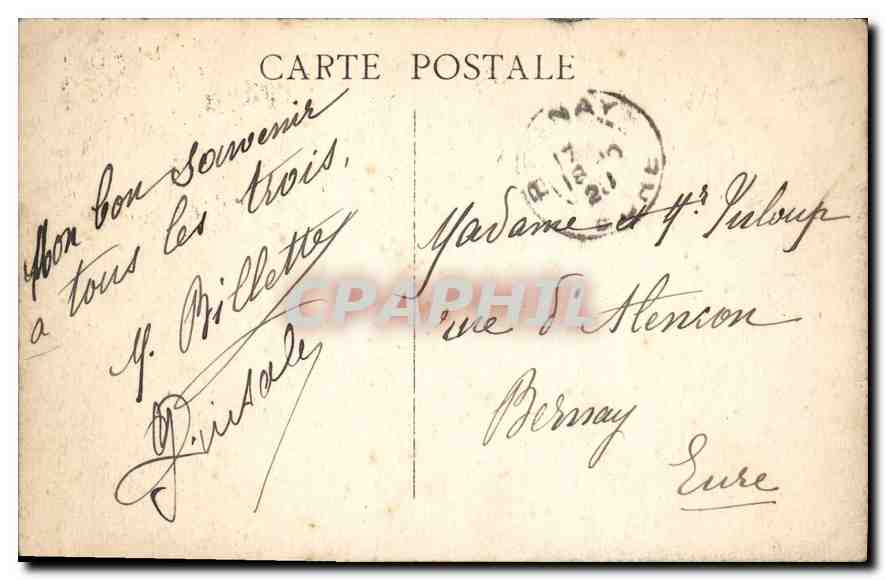 CARTE POSTALE
Mon bon souvenir
a tous les trois.
M. Billette
NAY
EURE
Madame et Mr
rue d'Alencon
Bernay
Eure
CPAPHIL